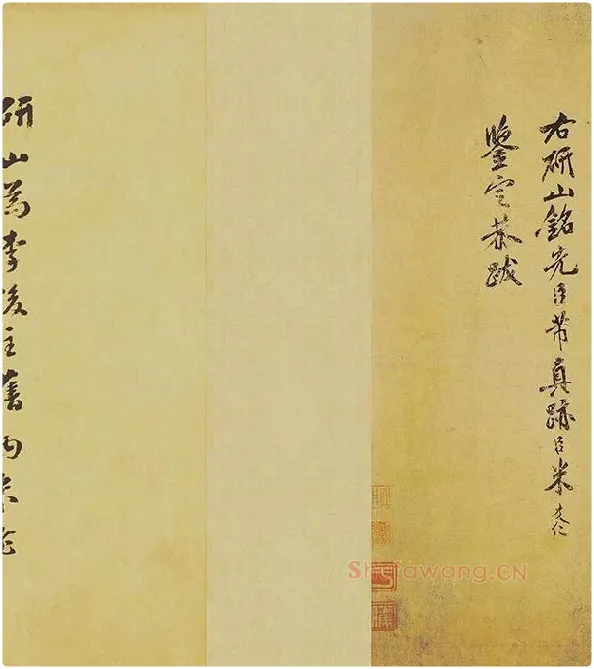 右研山銘先臣芾真蹟臣米友仁
鑒定恭跋
研山為李後主舊物米
Shufawang.CN